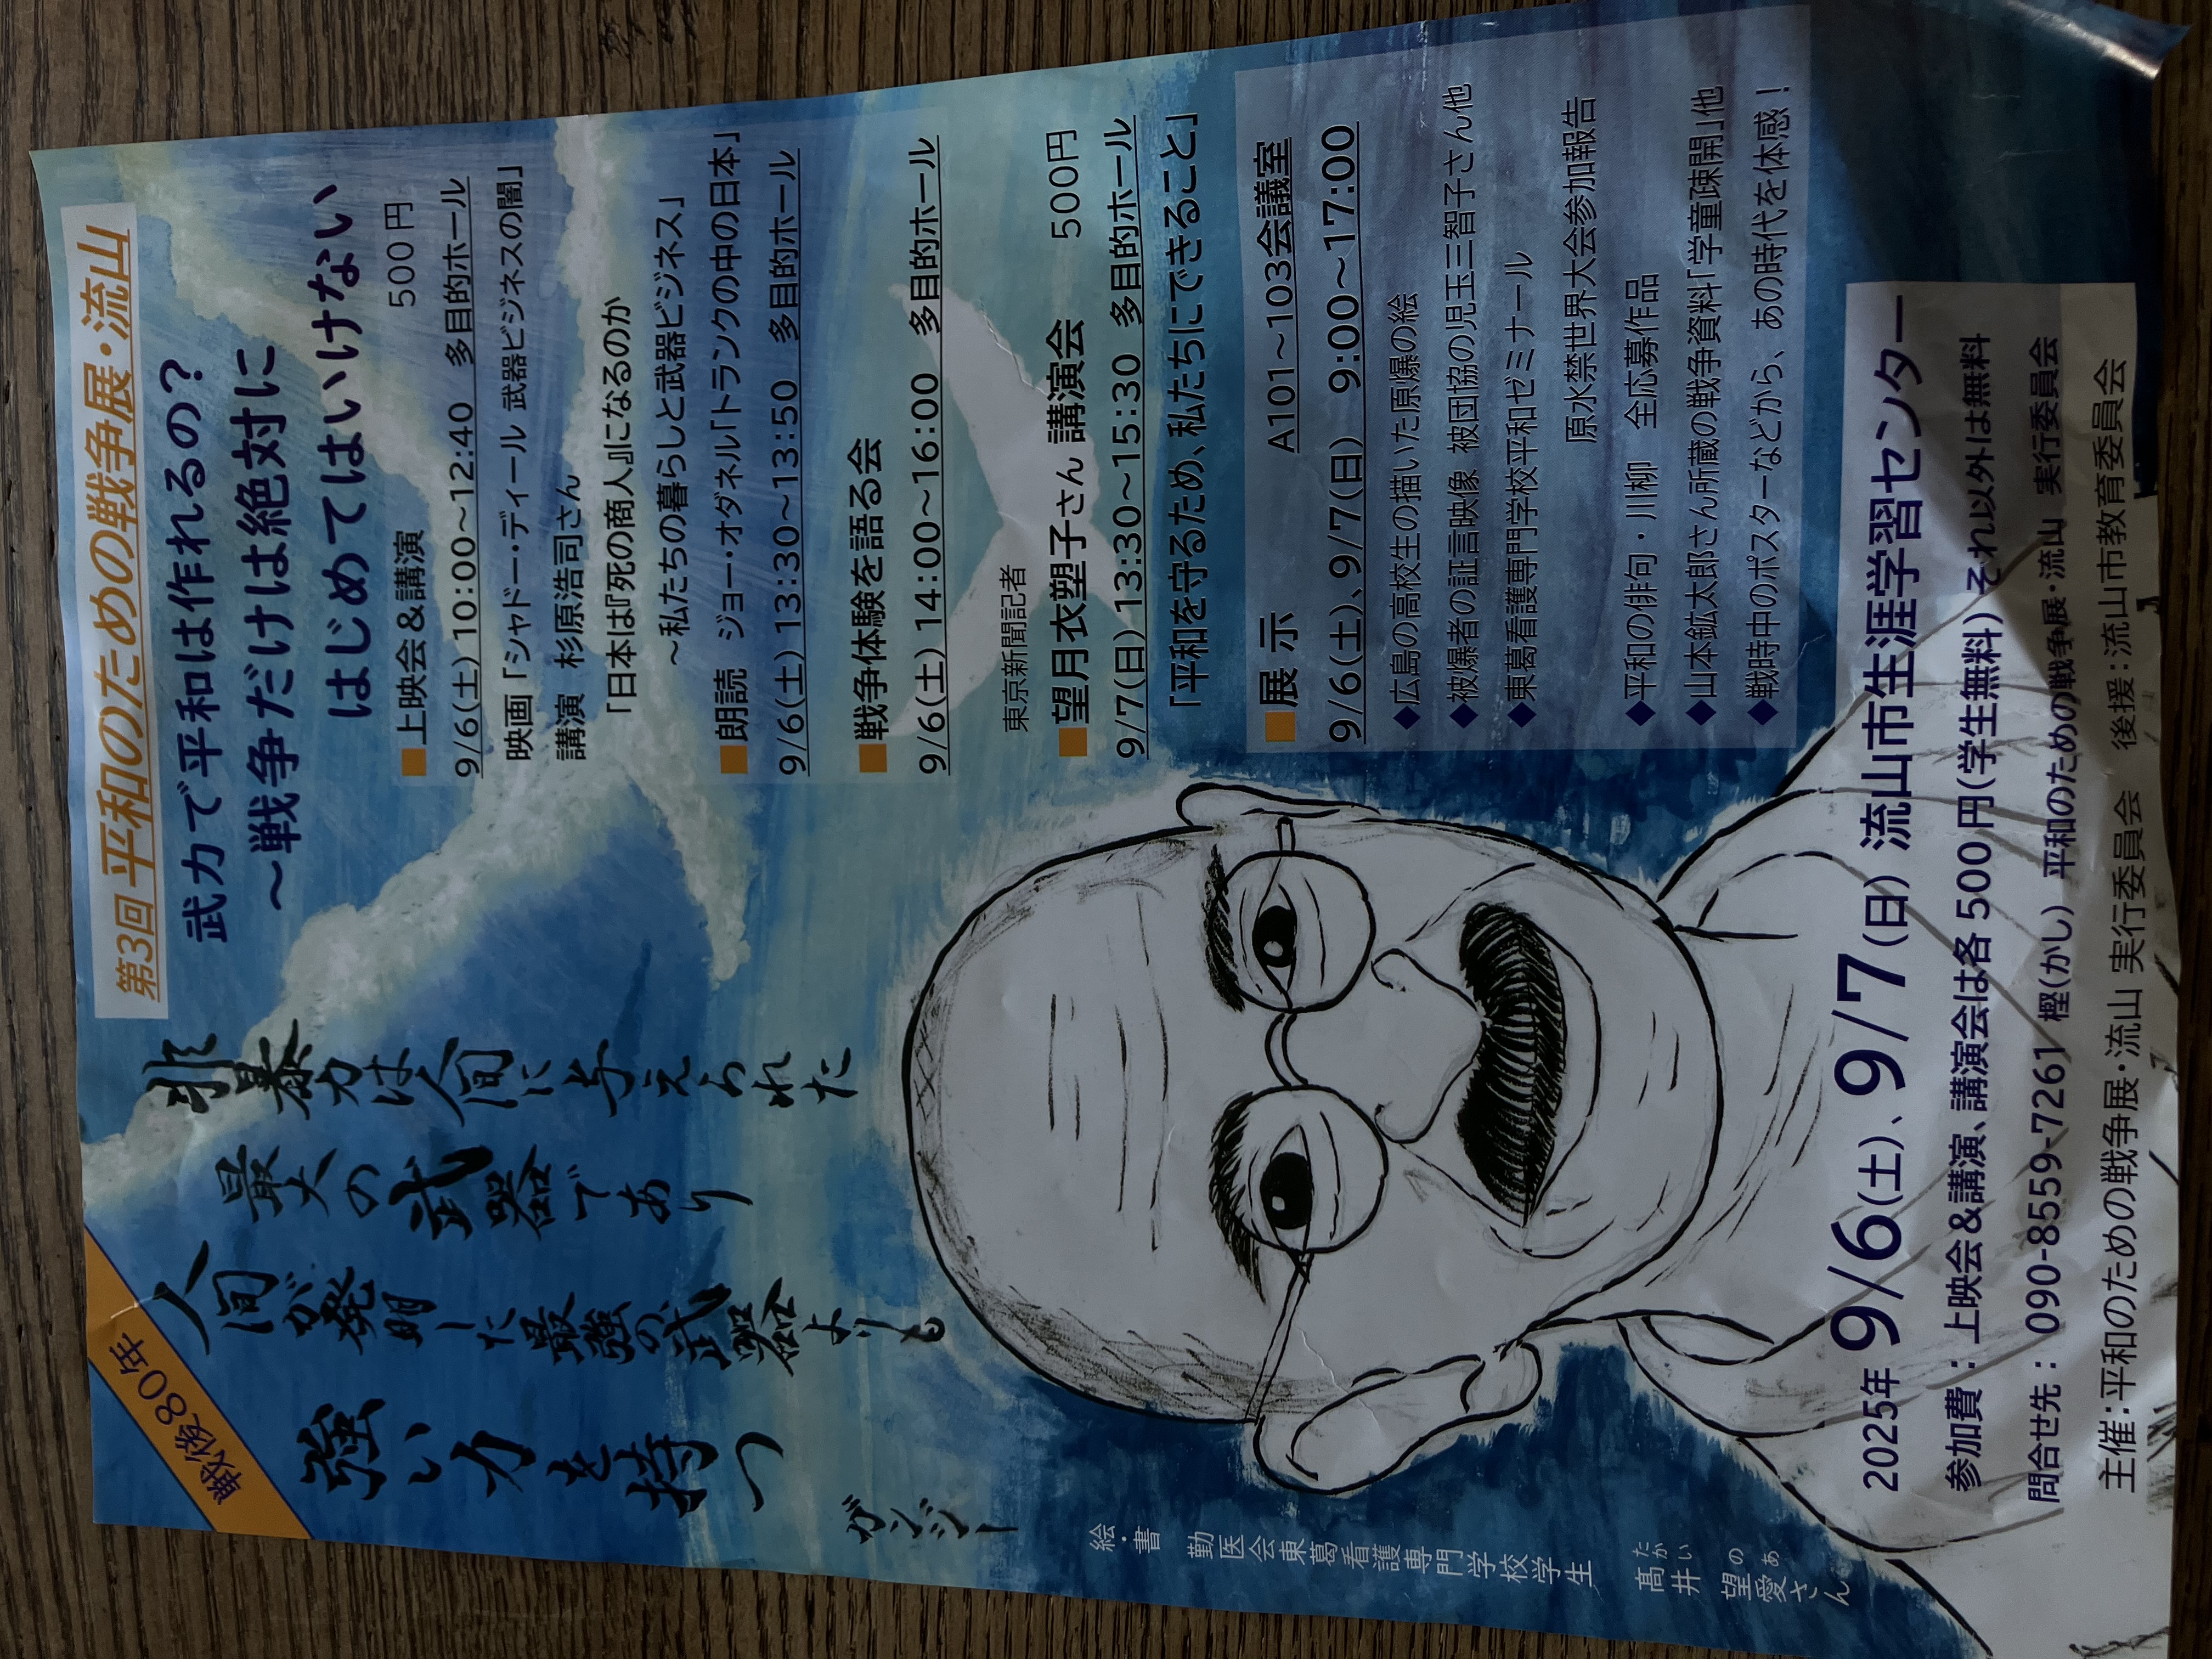 戦後80年
第3回 平和のための戦争展・流山
武力で平和は作れるの？
～戦争だけは絶対に
はじめてはいけない
■上映会＆講演　500円
9/6(土) 10:00～12:40　多目的ホール
映画「シャドー・ディール 武器ビジネスの闇」
講演　杉原浩司さん
「日本は『死の商人』になるのか
～私たちの暮らしと武器ビジネス」
■朗読　ジョー・オダネル「トランクの中の日本」
9/6(土) 13:30～13:50　多目的ホール
■戦争体験を語る会
9/6(土) 14:00～16:00　多目的ホール
東京新聞記者
■望月衣塑子さん 講演会　500円
9/7(日) 13:30～15:30 多目的ホール
「平和を守るため、私たちにできること」
■展 示　A101～103会議室
9/6(土)、9/7(日)　9:00～17:00
◆広島の高校生の描いた原爆の絵
◆被爆者の証言映像 被団協の児玉三智子さん他
◆東葛看護専門学校平和ゼミナール
原水禁世界大会参加報告
◆平和の俳句・川柳　全応募作品
◆山本鉱太郎さん所蔵の戦争資料「学童疎開」他
◆戦時中のポスターなどから、あの時代を体感！
非暴力は人間に与えられた
最大の武器であり
人間が発明した最強の武器よりも
強い力を持つ
ガンジー
絵・書　勤医会東葛看護専門学校学生
たかい　のあ
髙井　望愛さん
2025年 9/6(土)、9/7(日) 流山市生涯学習センター
参加費：上映会＆講演、講演会は各500円(学生無料) それ以外は無料
問合せ先： 090-8559-7261 樫(かし) 平和のための戦争展・流山 実行委員会
主催：平和のための戦争展・流山 実行委員会　後援：流山市教育委員会